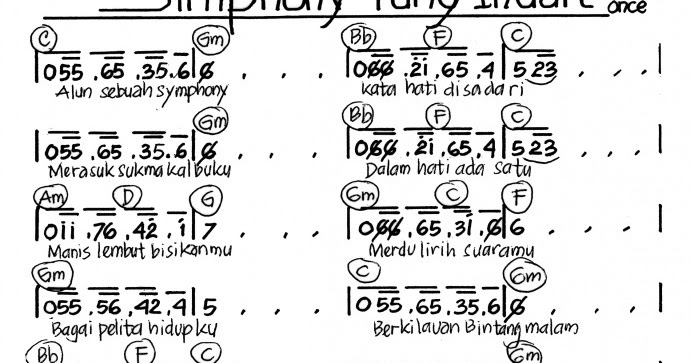 Simphony Yang Indah once
C Gm Bb F C
|055 .65 .35.6|6̸ . . . |06̸6̸ .2i .65 .4|5 23 . . . |
Alun sebuah symphony kata hati disadari
Gm Bb F C
|055 .65 .35.6|6̸ . . . |06̸6̸ .2i .65 .4|5 23 . . . |
Merasuk sukma kalbuku Dalam hati ada satu
Am D G Gm C F
|0ii .76 .42 .i|7 . . . |06̸6̸ .65 .3i .6̸|6 . . . |
Manis lembut bisikanmu Merdu lirih suaramu
Gm C Gm
|055 .56 .42 .4|5 . . . |055 .65 .35.6|6̸ . . . |
Bagai pelita hidupku Berkilauan Bintang malam
Bb F C Gm